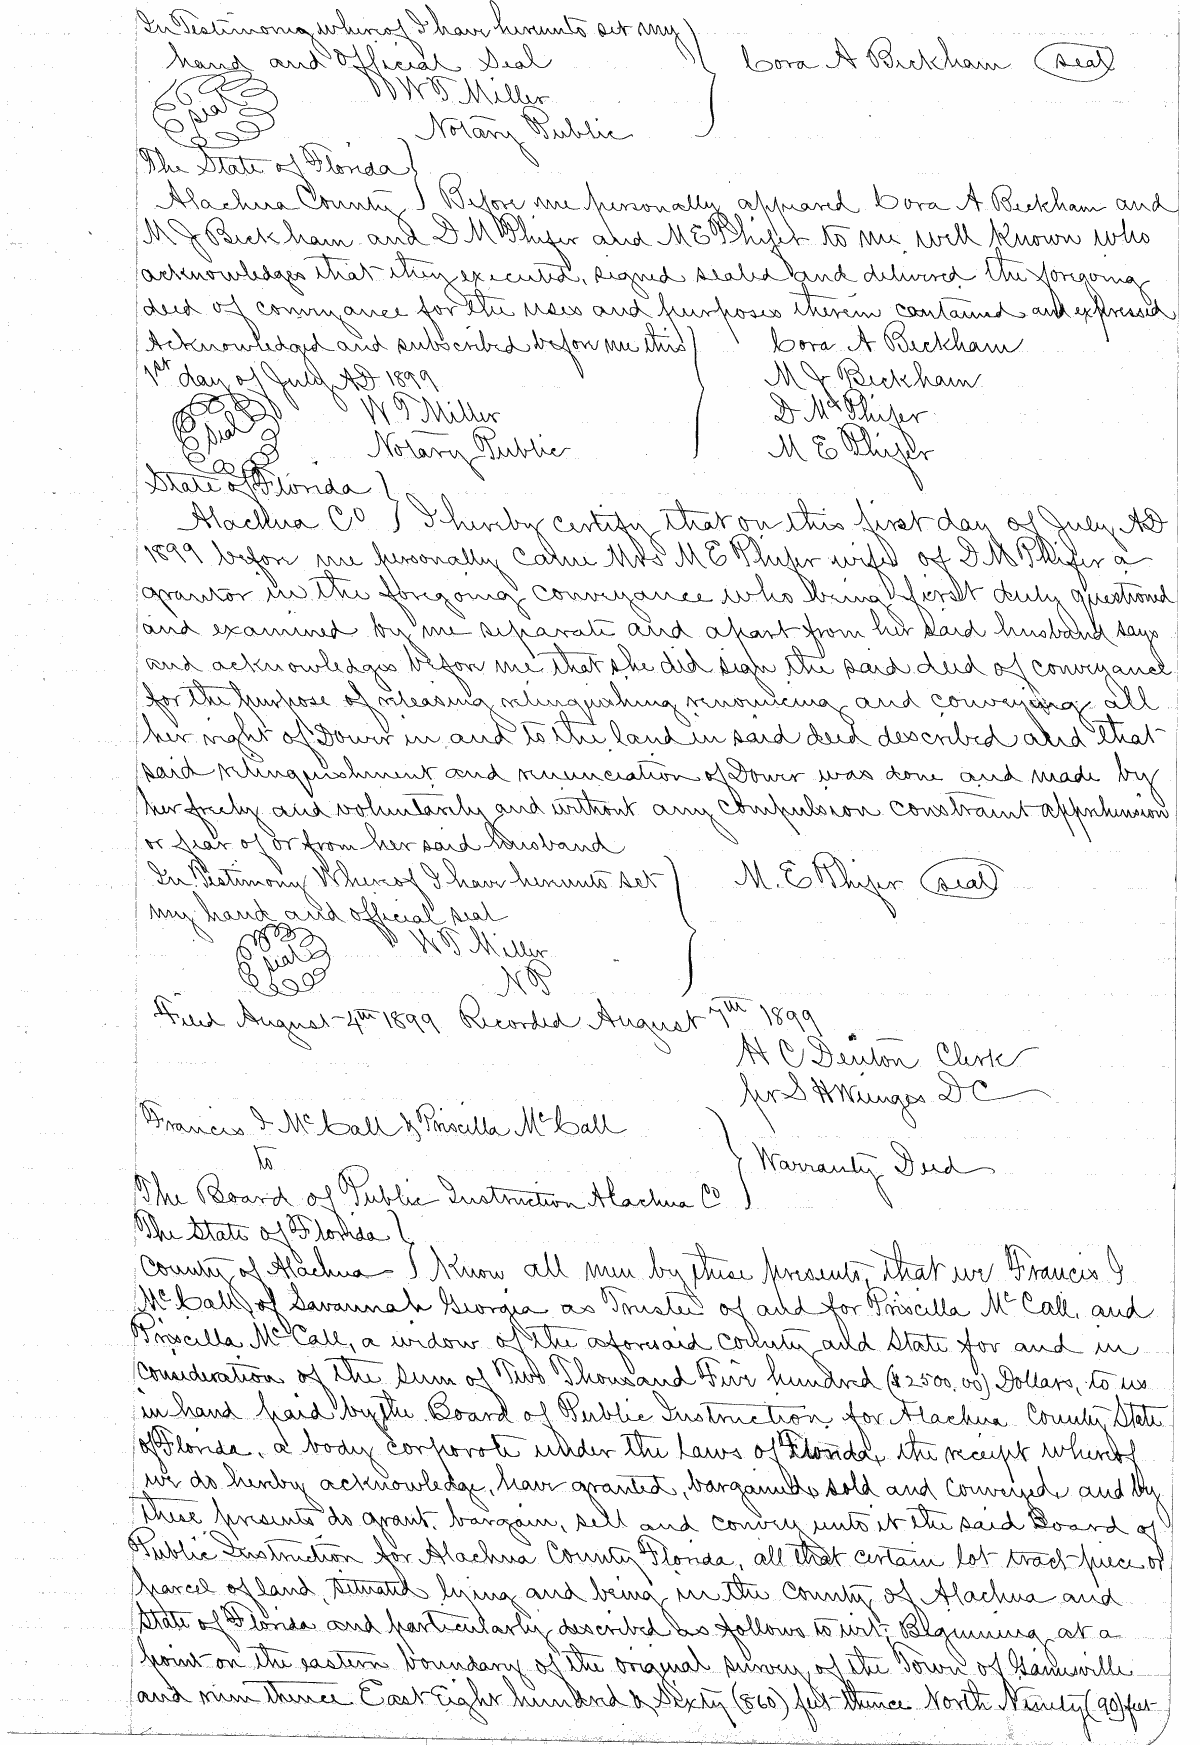 In Testimony whereof I have hereunto set my
hand and Official Seal
Cora A Beckham (seal)
W T Miller
seal
Notary Public
The State of Florida
Alachua County Before me personally appeared Cora A Beckham and
M J Beckham and D M Phifer and M E Phifer to me well known who
acknowledges that they executed, signed sealed and delivered the foregoing
deed of conveyance for the uses and purposes therein contained and expressed
Acknowledged and subscribed before me this
1st day of July AD 1899
W T Miller
seal
Notary Public
Cora A Beckham
M J Beckham
D M Phifer
M E Phifer
State of Florida
Alachua Co I hereby certify that on this first day of July AD
1899 before me personally came Mrs M E Phifer wife of D M Phifer a
grantor in the foregoing conveyance who being first duly questioned
and examined by me separate and apart from her said husband says
and acknowledges before me that she did sign the said deed of conveyance
for the purpose of releasing relinquishing renouncing and conveying all
her right of Dower in and to the land in said deed described and that
said relinquishment and renunciation of Dower was done and made by
her freely and voluntarily and without any compulsion constraint apprehension
or fear of or from her said husband
In Testimony Whereof I have hereunto set
my hand and official seal
M. E Phifer (seal)
W T Miller
seal
N P
Filed August 4th 1899 Recorded August 7th 1899
H C Denton Clerk
per S H Wienges D C
Francis I McCall & Priscilla McCall
to
Warranty Deed
The Board of Public Instruction Alachua Co
The State of Florida
County of Alachua Know all men by these presents, that we Francis I
McCall of Savannah Georgia as Trustee of and for Priscilla McCall, and
Priscilla McCall, a widow of the aforesaid county and State for and in
consideration of the sum of Two Thousand Five hundred ($2500.00) Dollars, to us
in hand paid by the Board of Public Instruction for Alachua County State
of Florida, a body corporate under the Laws of Florida, the receipt whereof
we do hereby acknowledge, have granted, bargained, sold and conveyed, and by
these presents do grant, bargain, sell and convey unto it the said Board of
Public Instruction for Alachua County Florida, all that certain lot tract piece or
parcel of land, situated lying and being in the County of Alachua and
State of Florida and particularly described as follows to wit; Beginning at a
point on the eastern boundary of the original survey of the Town of Gainesville
and run thence East Eight hundred & Sixty (860) feet thence North Ninety (90) feet